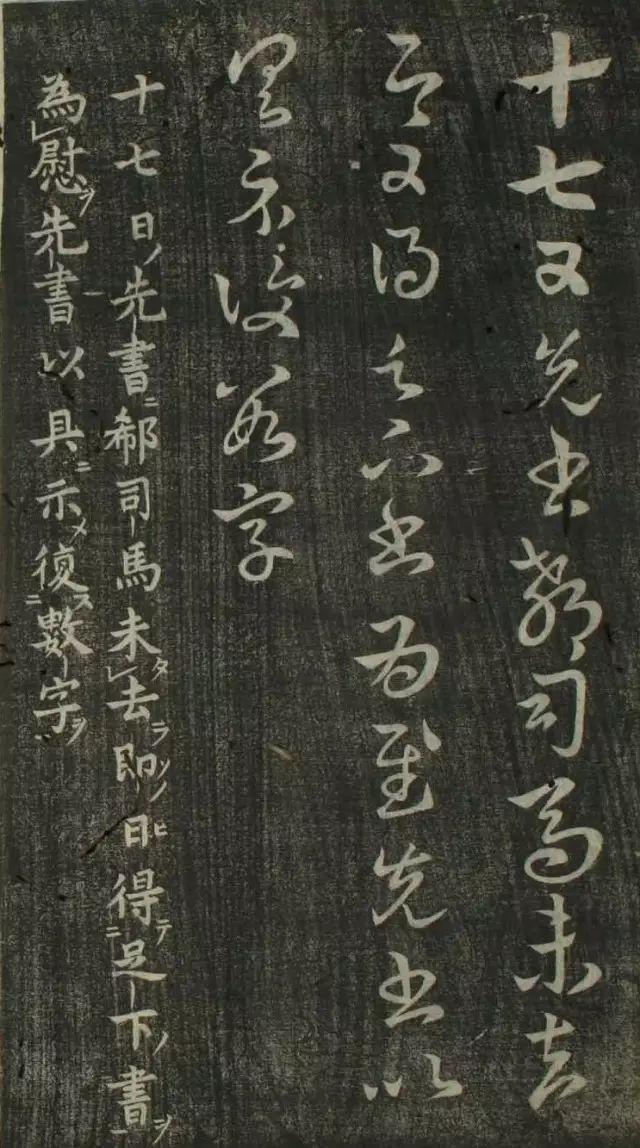 十七日先書郗司馬未去
即日得足下書為慰先書以
具示復數字
十七日ノ先書ニ郗司馬未タ去ラソノ即日ヒ得テ足下ノ書ヲ
為慰ヲ先書以具ニ示メ復ス數字ヲ